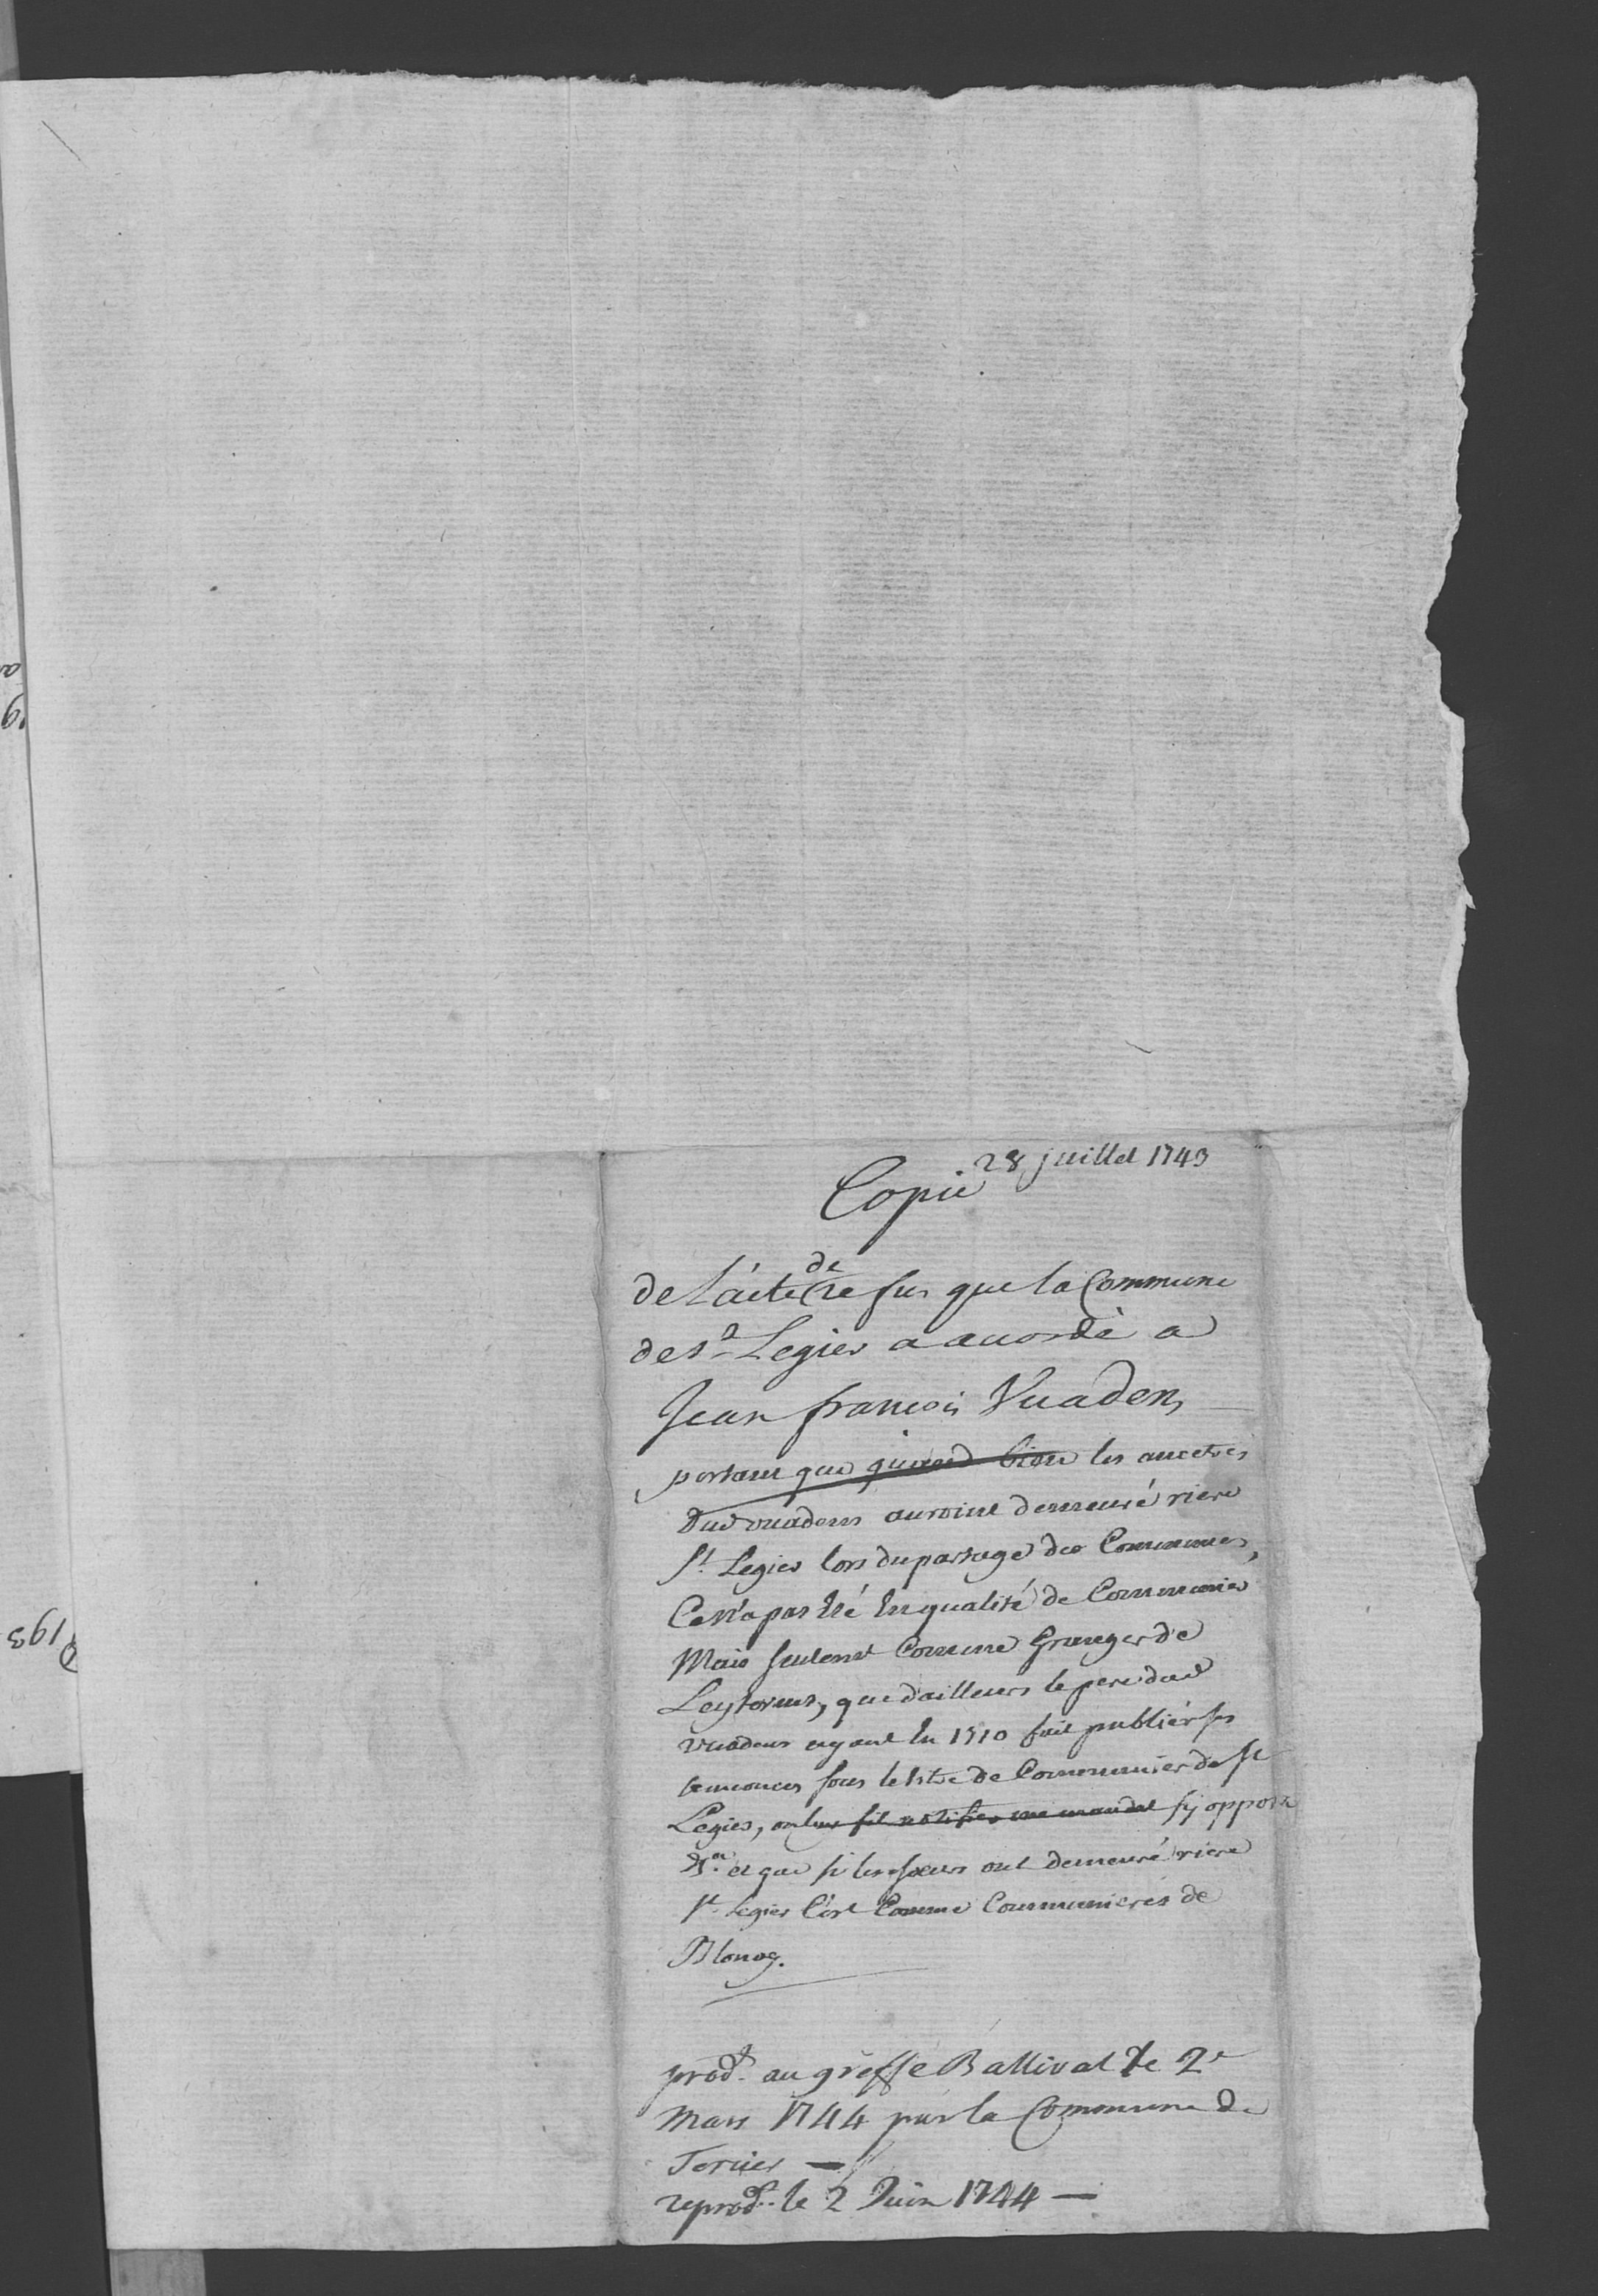 28 juillet 1743
Copie
de
de l'acte refus que la Commune
de st Legier a accordé a
Jean francois Vuaden,
portant que quand bien les ancetres
Dud vuadens auroint demeuré riere
St. Legier lors du partage des Communes,
Ce n'a pas été En qualité de Communier
Mais seulemt Comme Granger de
que d'ailleurs le pere dud
vuadens ayant En 1710 fait publier ses
annonces sous le titre de Communier de St
Legier, on leur fit notifier un mandat s'y
et que si les ont demeuré riere
St Legier C'est Comme Communieres de
Blonay.
prod. au greffe Ballival le 2e
Mars 1744 par la Commune de
reprod. le 2 Juin 1744 —
193